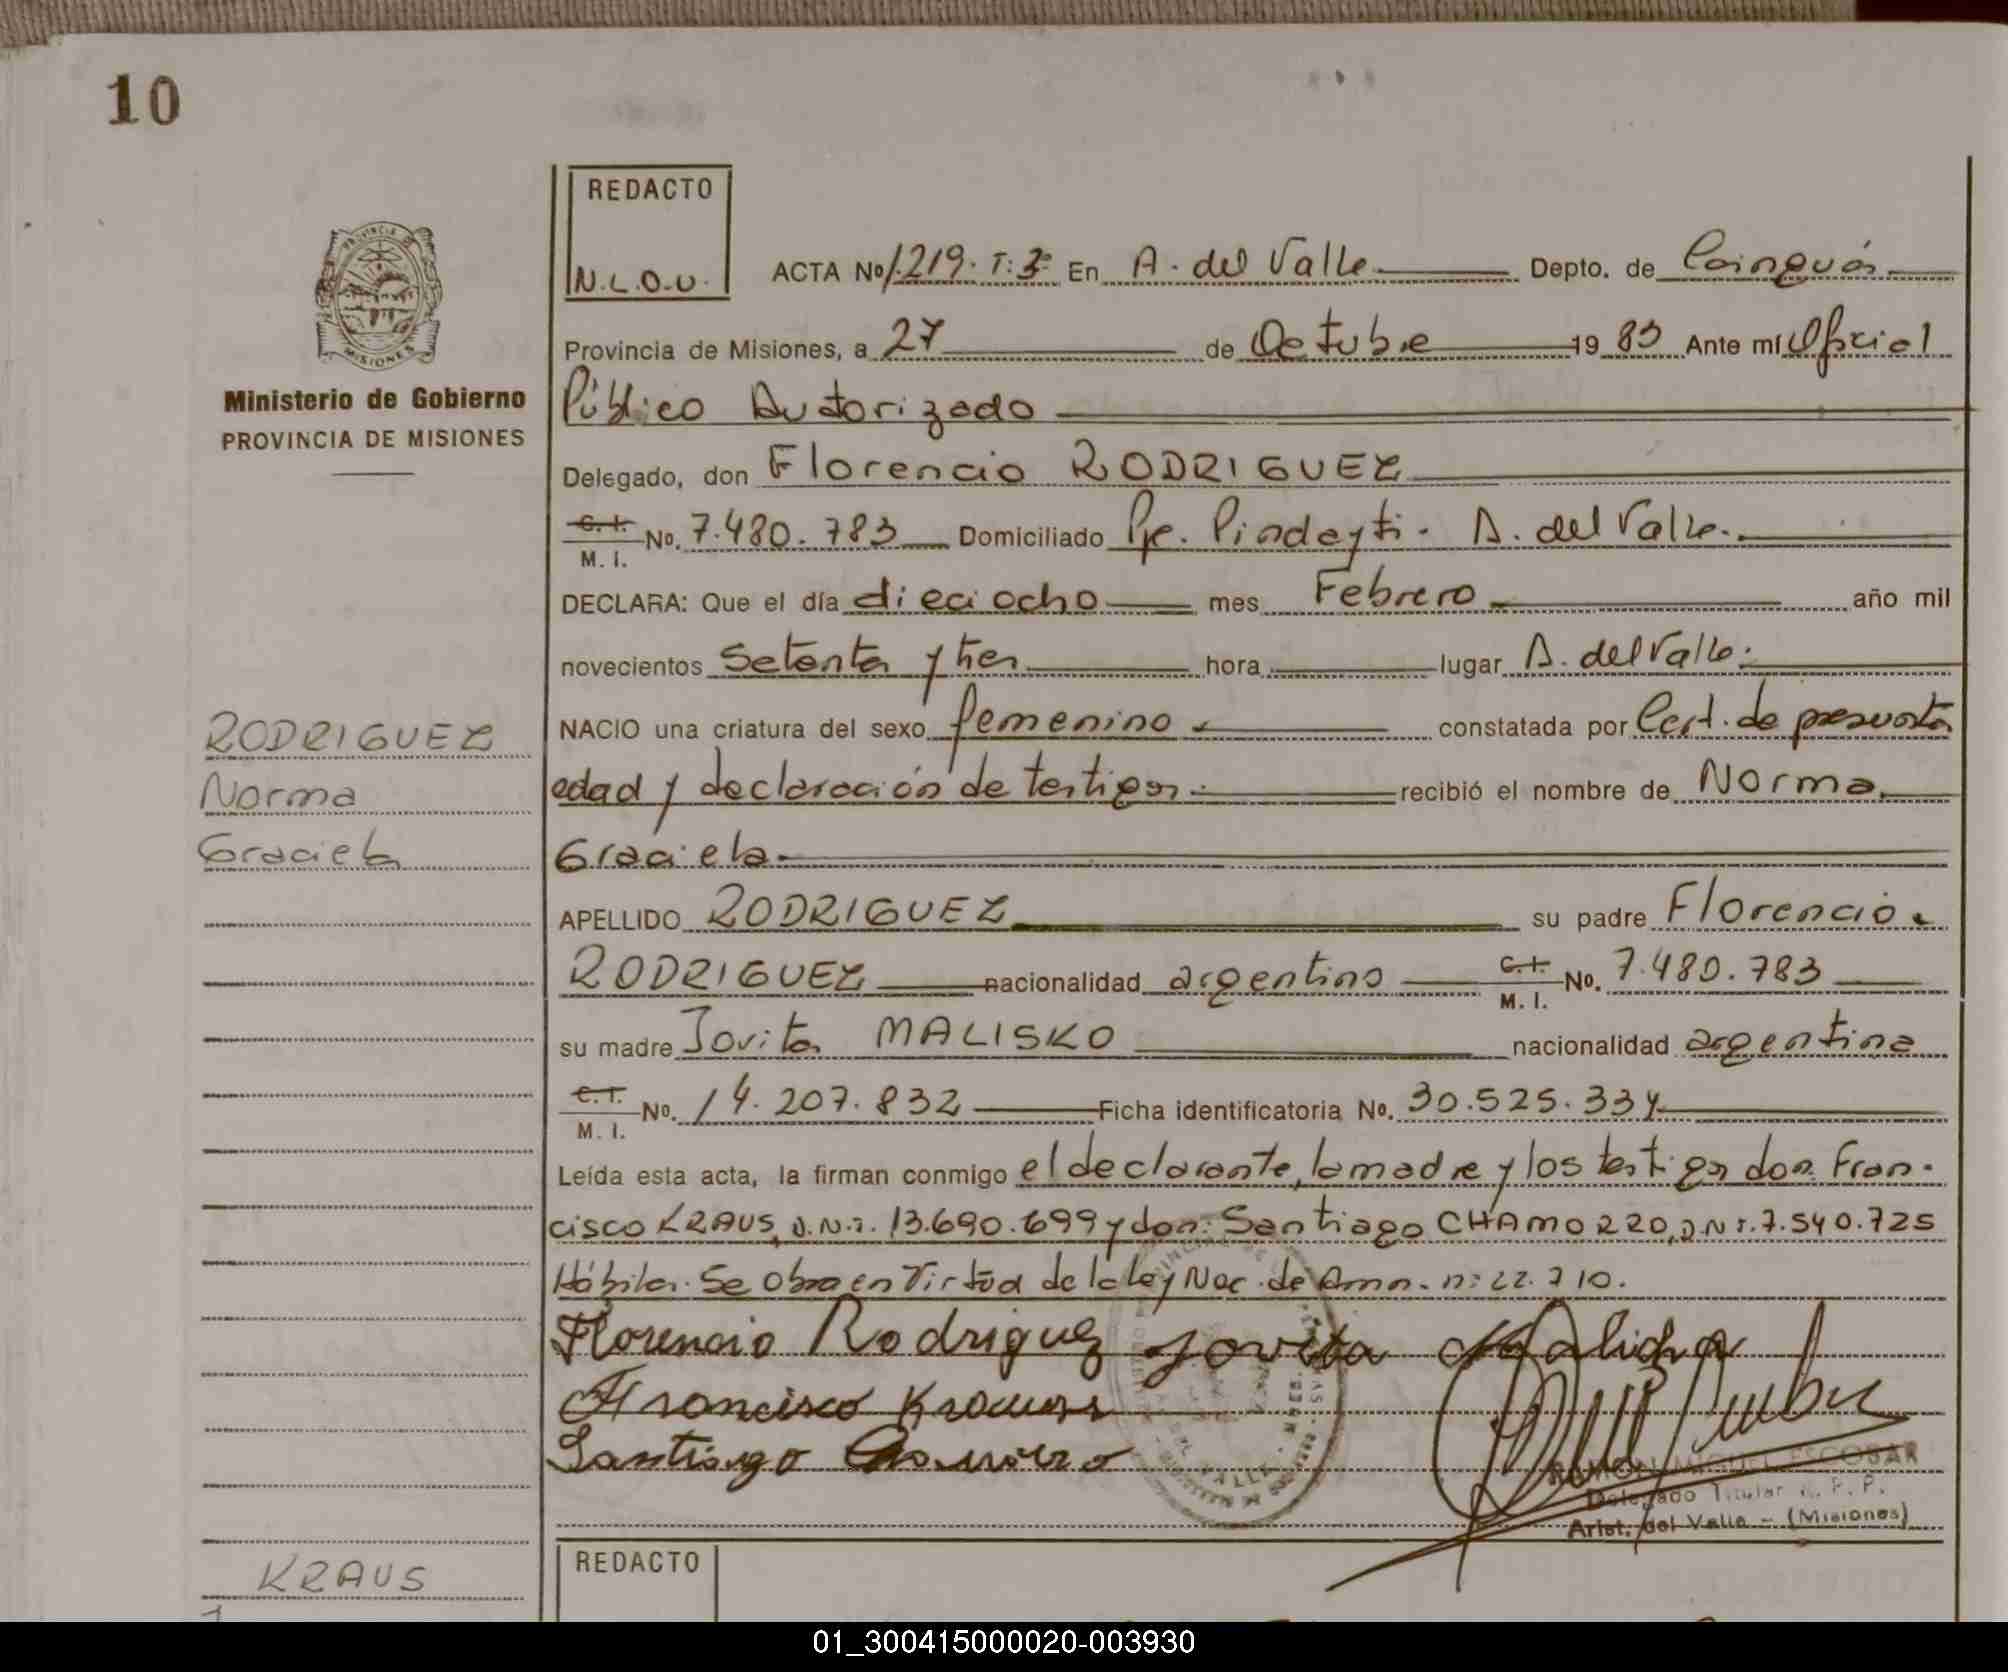 10
REDACTO
N.L.O.U.
ACTA Nº 1.219. T: 3º En A. del Valle Depto. de Cainguás
Provincia de Misiones, a 27 de Octubre 1983 Ante mí Oficial
Público Autorizado
Delegado, don Florencio RODRIGUEZ
C. I. M. I. No. 7.480.783 Domiciliado Pje. Pindayti. A. del Valle.
DECLARA: Que el día dieciocho mes Febrero año mil
novecientos Setenta y tres hora lugar A. del Valle.
NACIO una criatura del sexo femenino constatada por Cert. de presunta
edad y declaración de testigos. recibió el nombre de Norma
Graciela.
APELLIDO RODRIGUEZ su padre Florencio
RODRIGUEZ nacionalidad argentino C. I. M. I. No. 7.480.783
su madre Jovita MALISKO nacionalidad argentina
C. I. M. I. No. 14.207.832 Ficha identificatoria No. 30.525.334
Leída esta acta, la firman conmigo el declarante, la madre y los testigos don Fran-
cisco KRAUS, D.N.I. 13.690.699 y don: Santiago CHAMORRO, D.N.I. 7.540.725
Hábiles. Se obra en Virtud de la Ley Nac. de Amn. nº 22.710.
Florencio Rodriguez Jovita
Francisco Kraus
Santiago
RAMON MIGUEL ESCOBAR
Delegado Titular R. P. P.
Arist. del Valle - (Misiones)
PROVINCIA DE
MISIONES
Ministerio de Gobierno
PROVINCIA DE MISIONES
RODRIGUEZ
Norma
Graciela
KRAUS
REDACTO
01_300415000020-003930